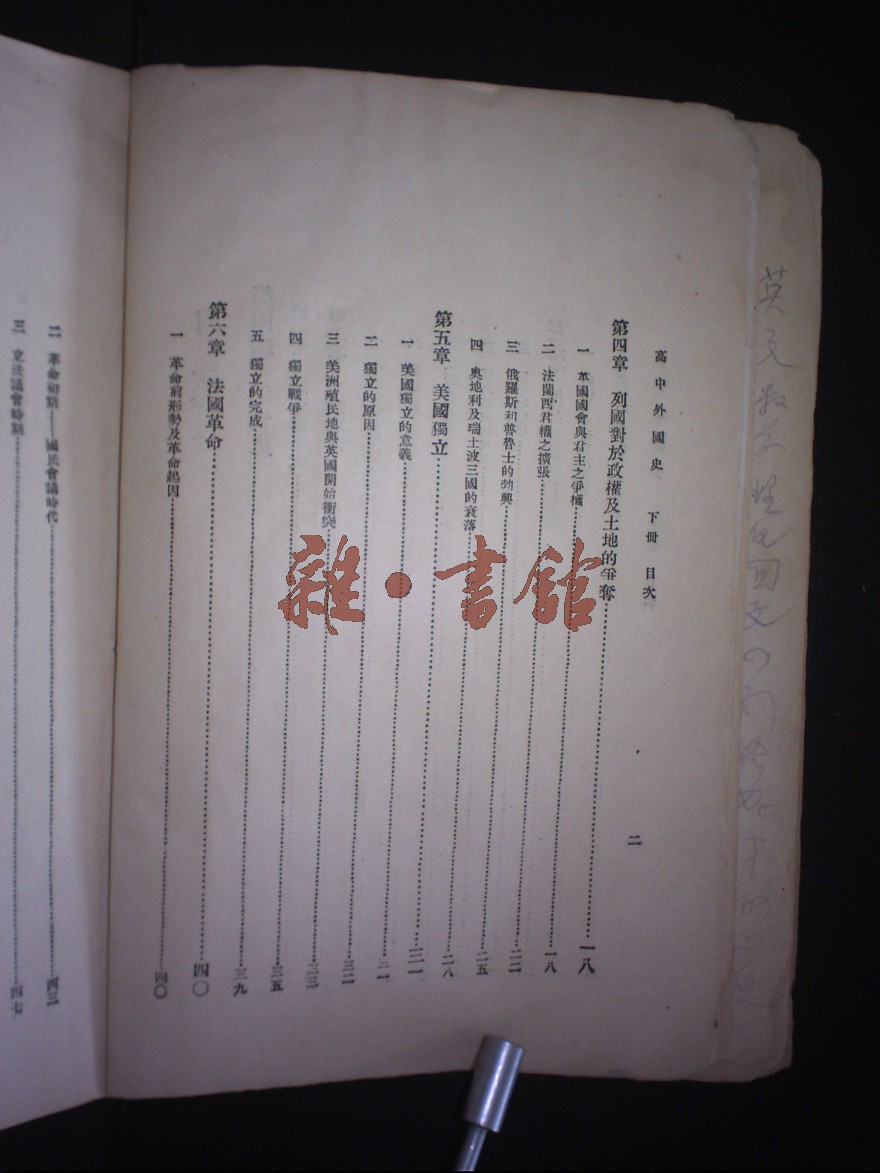 高中外國史 下冊 目次
二
第四章 列國對於政權及土地的爭奪 一八
一 英國國會與君主之爭權 一八
二 法蘭西君權之擴張 二二
三 俄羅斯和普魯士的勃興 二五
四 奧地利及瑞土波三國的衰落 二八
第五章 美國獨立
一 美國獨立的意義
二 獨立的原因
三 美洲殖民地與英國開始衝突
四 獨立戰爭 三五
五 獨立的完成 三九
第六章 法國革命 四〇
一 革命前形勢及革命起因 四〇
二 革命初期——國民會議時代 四三
三 立法議會時期 四七
雜·書館